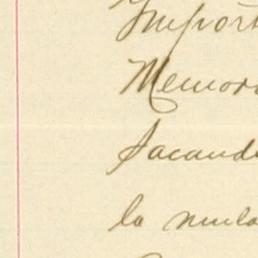 Import
Memori
Sacando
la mula